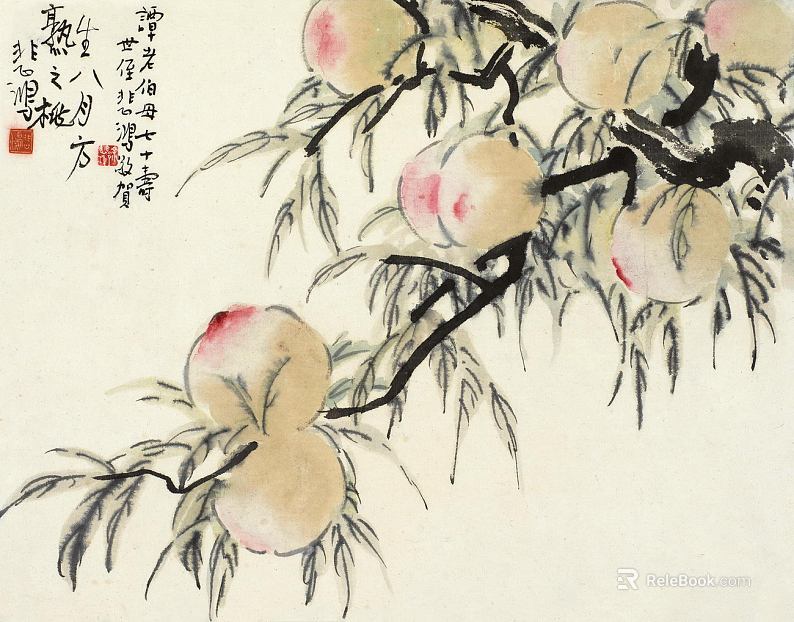 譚老伯母七十壽
世侄悲鴻敬賀
生八月方
熟之桃
悲鴻
ReleBook.com